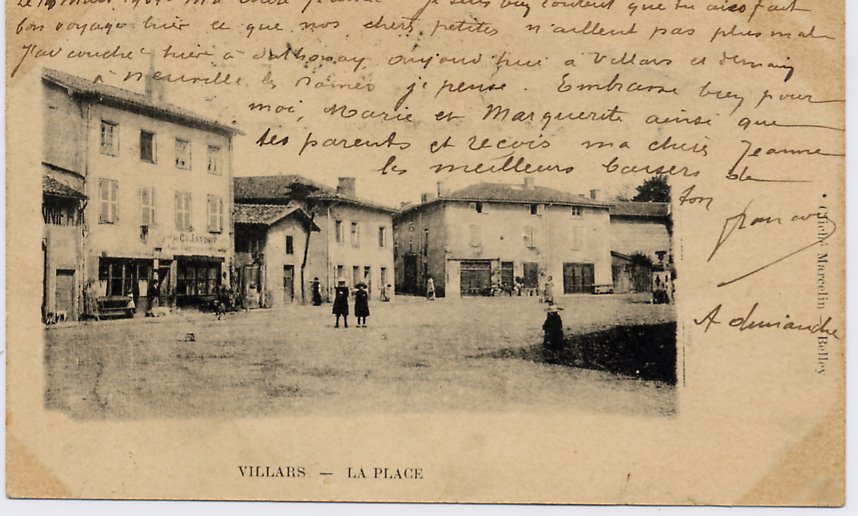 Ma chère Jeanne Je suis bien content que tu aies fait
bon voyage hier ce que nos chers petites n'aillent pas plus mal
J'ai couché hier à Sathonay aujourd'hui à Villars et demain
à Neuville les Dames je pense. Embrasse bien pour
moi, Marie et Marguerite ainsi que
tes parents et reçois ma chère Jeanne
les meilleurs baisers de
ton
François
A dimanche
C. JANDET
VILLARS — LA PLACE
Cliché Marcelin - Belley